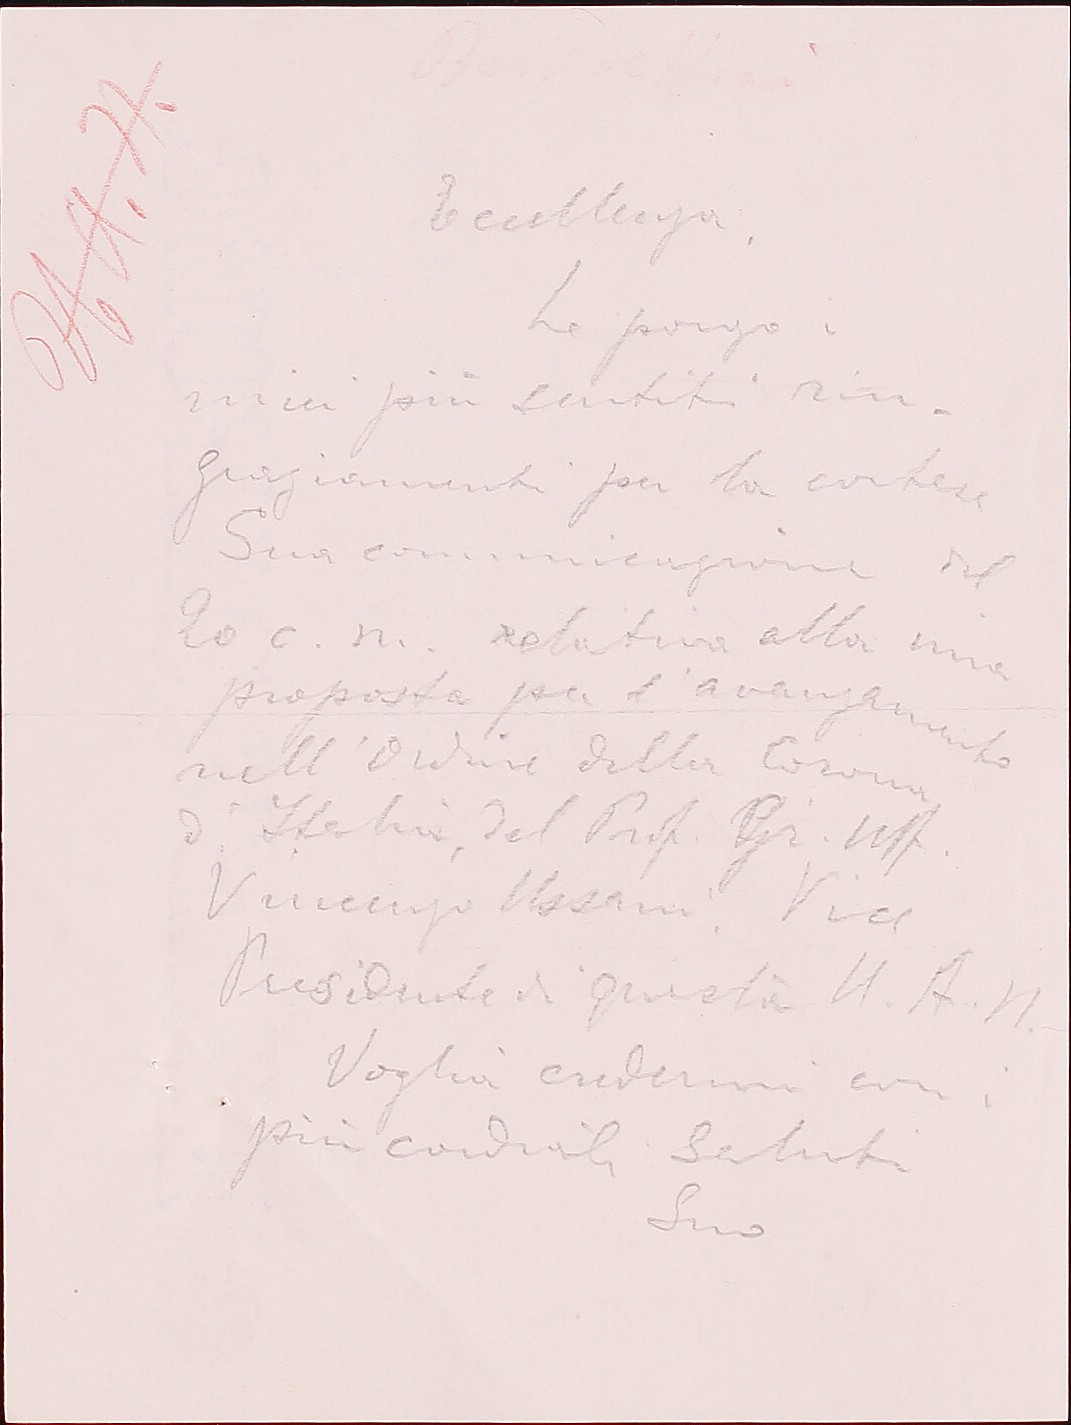 Eccellenza,
Le porgo i
miei più sentiti rin-
graziamenti per la cortese
Sua comunicazione del
20 c. m. relativa alla mia
proposta per l'avanzamento
nell'Ordine della Corona
d'Italia, del Prof. Gr. Uff.
Vincenzo Ussani, Vice
Presidente di questa U. A. N.
Voglia credermi con i
più cordiali saluti
Suo